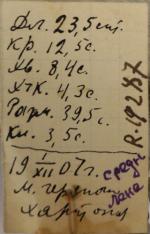 Дл. 23,5 см.
Кр. 12,5 с.
Хв. 8,4 с.
Ктк. 4,3 с.
Разм. 39,5 с.
Кл. 3,5 с.
19 1/XII 07 г.
R.19287
средн